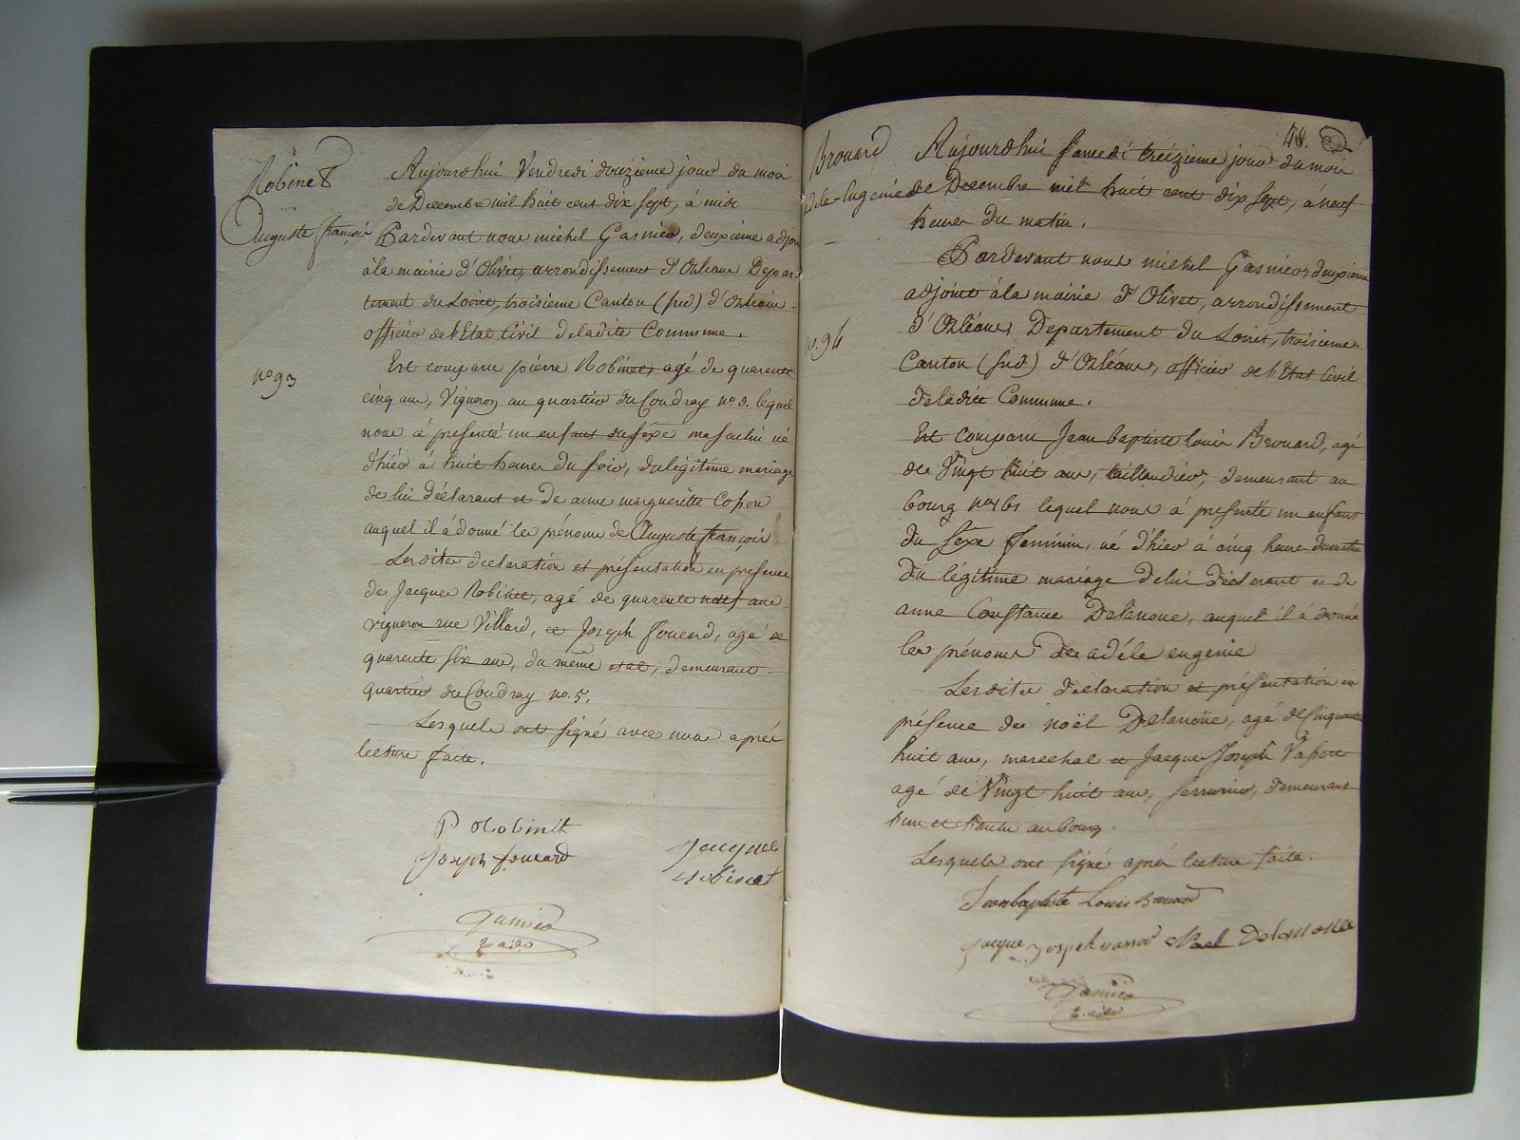 Robinet
Auguste françois
nº 93
Aujourdhui Vendredi douzieme jour du mois
de Decembre mil huit cent dix sept, à midi
Pardevant nous michel Gasnier, deuxieme adjoint
à la mairie d'Olivet, arrondissement d'Orléans Depar-
tement du Loiret, troisieme Canton (sud) d'Orléans
officier de l'Etat Civil de ladite Commune.
Est comparu pierre Robinet agé de quarente
cinq ans, Vigneron au quartier du Coudray nº 9. lequel
nous à presenté un enfant du sexe masculin né
d'hier à huit heures du soir, du légitime mariage
de lui déclarant et de anne marguerite
auquel il à donné les prénoms de Auguste françois
Lesdites declaration et présentation en presence
de Jacques Robinet, agé de quarente neuf ans
vigneron rue Villard, et Joseph foucard, agé de
quarente six ans, du même etat, demeurant
quartier du Coudray no. 5.
Lesquels ont signé avec nous après
lecture faite.
P Robinet
Joseph foucard
Jacques
Robinet
Gasnier
Brouard
adele-Eugénie
no. 94
48.
Aujourdhui Samedi treizieme jour du mois
de Decembre mil huit cent dix sept, à neuf
heures du matin.
Pardevant nous michel Gasnier deuxieme
adjoint à la mairie d'Olivet, arrondissement
d'Orléans Departement du Loiret, troisieme
Canton (sud) d'Orléans, officier de l'Etat Civil
de ladite Commune.
Est comparu Jean baptiste louis Brouard, agé
de Vingt huit ans, taillandier, demeurant au
bourg lequel nous à presenté un enfant
du sexe feminin, né d'hier à cinq heures du matin
du légitime mariage de lui déclarant et de
anne Constance Delanoue, auquel il à donné
les prénoms de adéle eugenie
Lesdites declaration et présentation en
présence de noël Delanoüe, agé de cinquante
huit ans, marechal et Jacques Joseph
agé de Vingt huit ans, serrurier, demeurant
l'un et l'autre au bourg.
Lesquels ont signé après lecture faite.
Jean baptiste Louis Brouard
Jacque Joseph Noel Delanoue
Gasnier